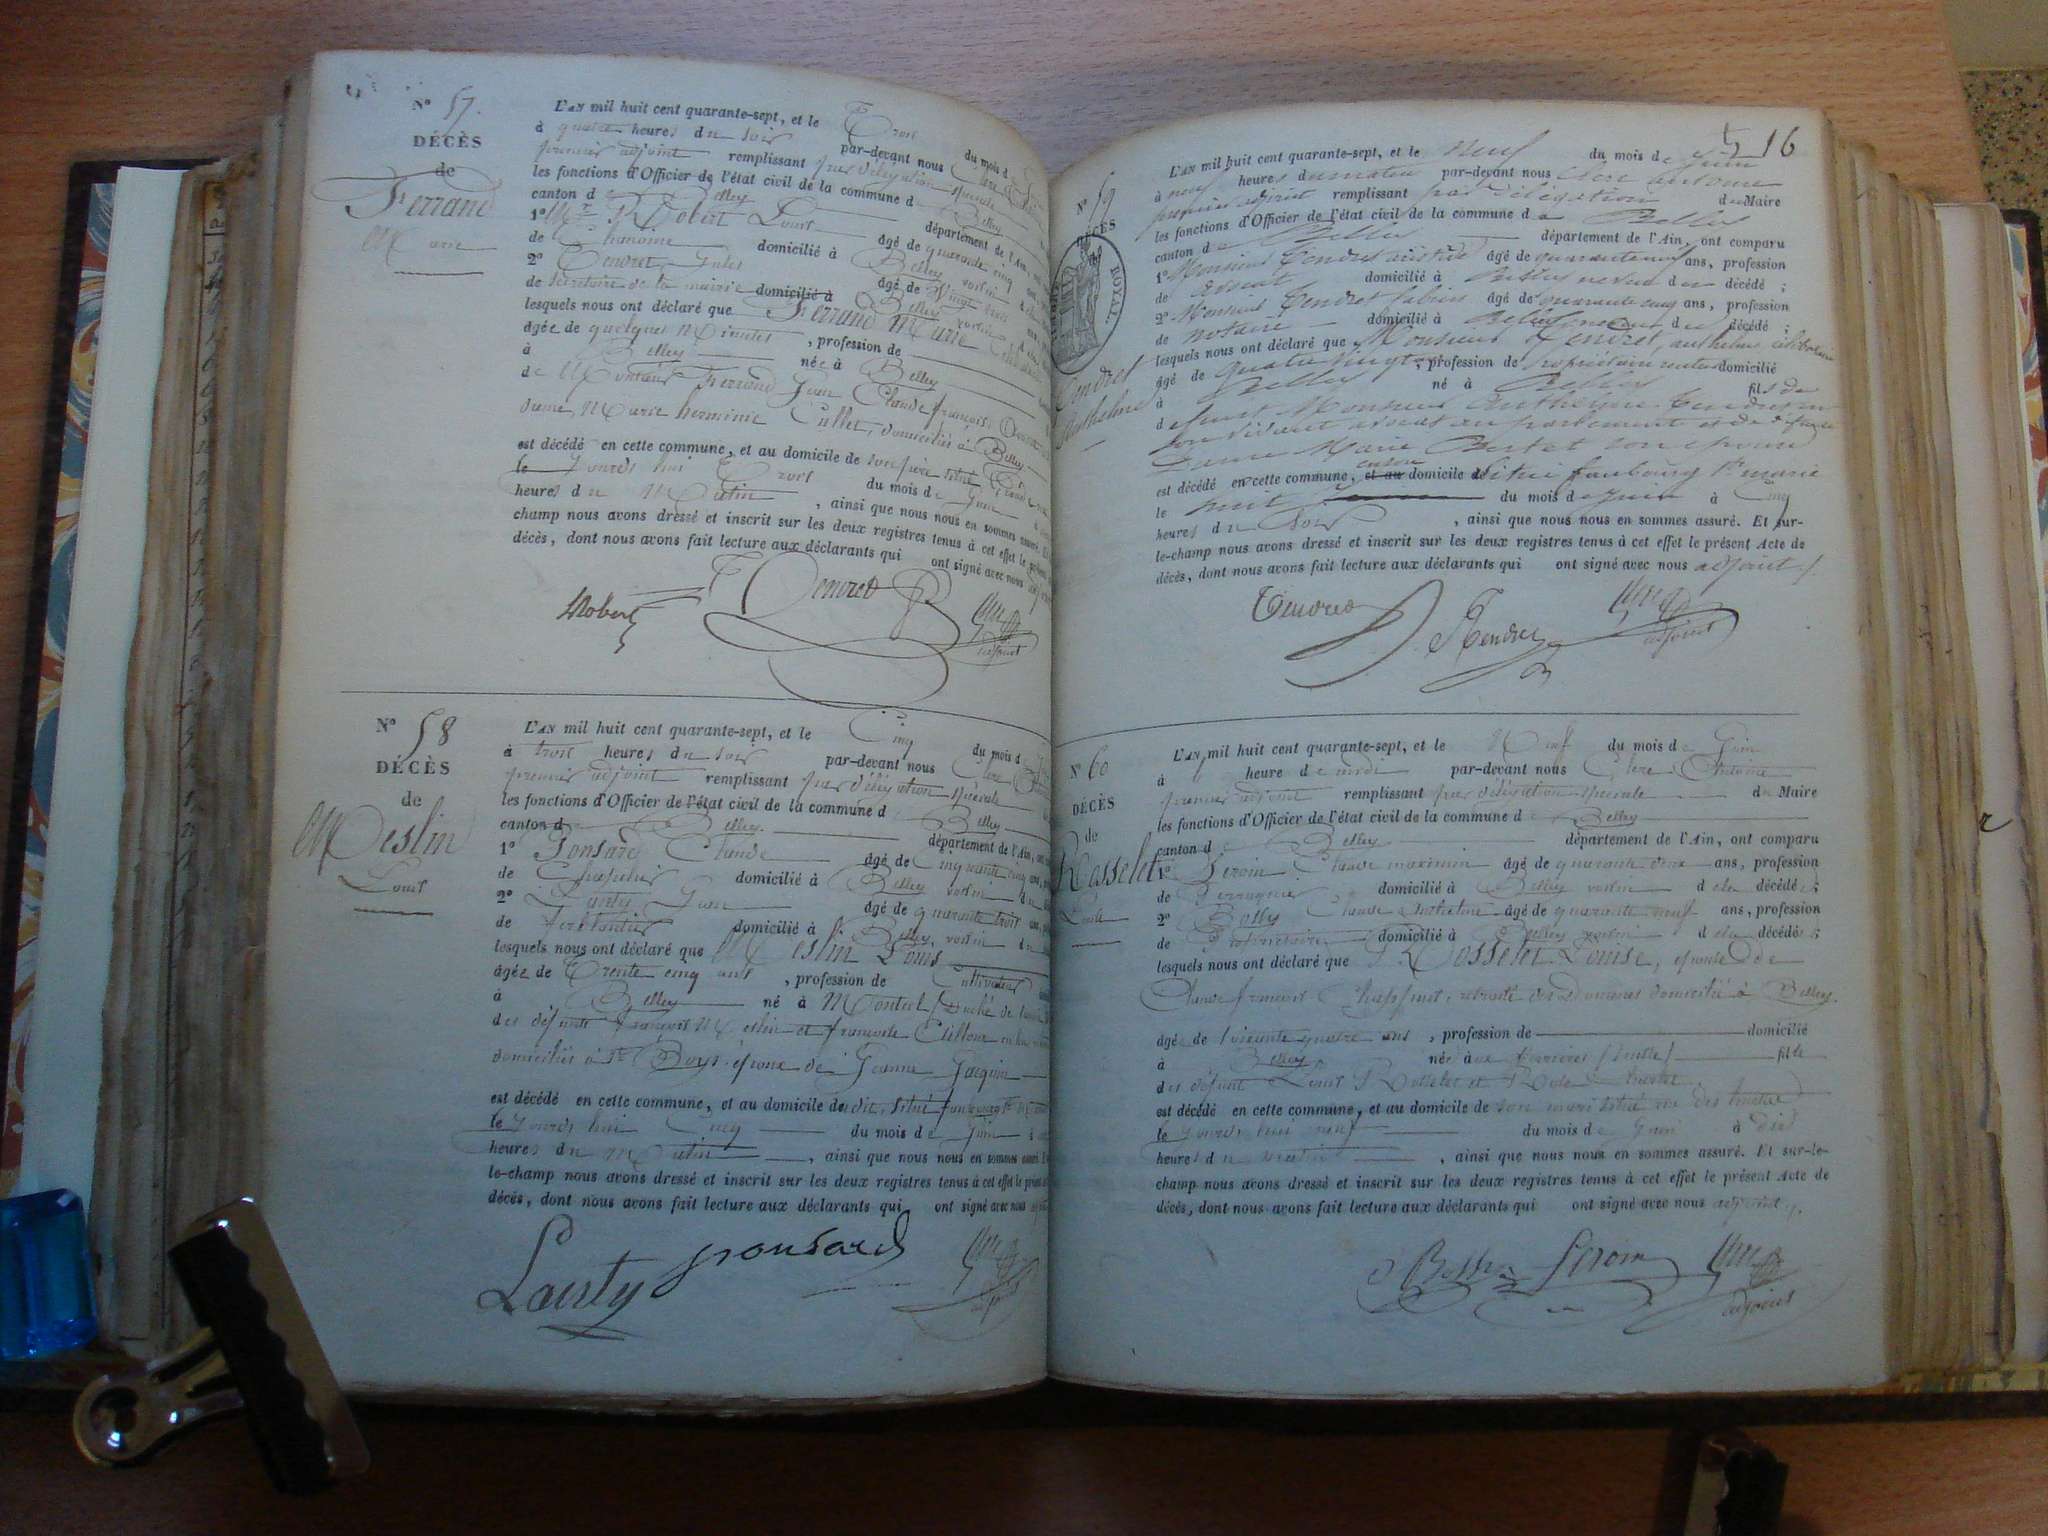 N° 57.
DÉCÈS
de
Ferrand
Marie
L'AN mil huit cent quarante-sept, et le Trois du mois d
à quatre heures du soir par-devant nous
premier adjoint remplissant par délégation spéciale
les fonctions d'Officier de l'état civil de la commune d Belley
canton de Belley département de l'Ain,
1° Mr Robert Louis âgé de quarante cinq
de Chanoine domicilié à Belley voisin
2° Tendret Jules âgé de vingt
de secrétaire de la mairie domicilié à Belley voisin
lesquels nous ont déclaré que Ferrand Marie
âgée de quelques minutes, profession de
à Belley née à Belley
de Monsieur Ferrand Jean Claude françois
dame Marie herminie Cullet, domiciliés à Belley
est décédé en cette commune, et au domicile de son père situé
le jourd'hui Trois du mois de Juin
heures du Matin, ainsi que nous nous en sommes assuré. Et
champ nous avons dressé et inscrit sur les deux registres tenus à cet effet le présent
décès, dont nous avons fait lecture aux déclarants qui ont signé avec nous
LRobert Tendret adjoint
N° 58
DÉCÈS
de
Meslin
Louis
L'AN mil huit cent quarante-sept, et le Cinq du mois d
à trois heures du soir par-devant nous
premier adjoint remplissant par délégation spéciale
les fonctions d'Officier de l'état civil de la commune d Belley
canton de Belley département de l'Ain,
1° Ponsard Claude âgé de cinquante cinq ans,
de Chapelier domicilié à Belley voisin du
2° Lanty Jean âgé de quarante trois ans,
de ferblantier domicilié à Belley, voisin du
lesquels nous ont déclaré que Meslin Louis
âgée de Trente cinq ans, profession de Cultivateur
à Belley né à
des défunts françois Meslin et françoise
domiciliés à St Boys époux de Jeanne Jacquin
est décédé en cette commune, et au domicile dudit, situé faubourg St
le jourd'hui Cinq du mois de Juin à
heures du Matin, ainsi que nous nous en sommes assuré.
le-champ nous avons dressé et inscrit sur les deux registres tenus à cet effet le présent
décès, dont nous avons fait lecture aux déclarants qui ont signé avec nous
Lanty ponsard adjoint
16
N° 59
DÉCÈS
ROYAL.
Tendret
Anthelme
L'AN mil huit cent quarante-sept, et le neuf du mois de Juin
à neuf heures du matin par-devant nous Clerc antoine
premier adjoint remplissant par délégation du Maire
les fonctions d'Officier de l'état civil de la commune de Belley
canton de Belley département de l'Ain, ont comparu
1° Monsieur Tendret aristide âgé de quarante neuf ans, profession
de avocat domicilié à Belley neveu du décédé ;
2° Monsieur Tendret fabien âgé de quarante cinq ans, profession
de notaire domicilié à Belley neveu du décédé ;
lesquels nous ont déclaré que Monsieur Tendret, anthelme célibataire
âgé de quatre vingt, profession de propriétaire rentier domicilié
à Belley né à Belley fils de
défunt Monsieur Anthelme Tendret
son vivant avocat au parlement et de défunte
Dame Marie Bertet son épouse
est décédé en cette commune, et au domicile situé faubourg St marie
le huit du mois de Juin à Cinq
heures du soir, ainsi que nous nous en sommes assuré. Et sur-
le-champ nous avons dressé et inscrit sur les deux registres tenus à cet effet le présent Acte de
décès, dont nous avons fait lecture aux déclarants qui ont signé avec nous adjoint
Tendret Tendret adjoint
N° 60
DÉCÈS
de
Rosselet
Louise
L'AN mil huit cent quarante-sept, et le Neuf du mois de Juin
à heure de midi par-devant nous Clerc Antoine
premier adjoint remplissant par délégation spéciale du Maire
les fonctions d'Officier de l'état civil de la commune de Belley
canton de Belley département de l'Ain, ont comparu
1° Peroin Claude maximin âgé de quarante deux ans, profession
de Perruquier domicilié à Belley voisin de la décédée ;
2° Bossy Claude Anthelme âgé de quarante neuf ans, profession
de Propriétaire domicilié à Belley voisin de la décédée ;
lesquels nous ont déclaré que Rosselet Louise, épouse de
Claude françois, retraité des Douanes domicilié à Belley.
âgé de soixante quatre ans, profession de domicilié
à Belley née aux Verrières (suisse) fille
des défunts Louis Rosselet et Rose
est décédé en cette commune, et au domicile de son mari situé rue des
le jourd'hui neuf du mois de Juin à dix
heures du matin, ainsi que nous nous en sommes assuré. Et sur-le-
champ nous avons dressé et inscrit sur les deux registres tenus à cet effet le présent Acte de
décès, dont nous avons fait lecture aux déclarants qui ont signé avec nous adjoint.
Bossy Peroin adjoint